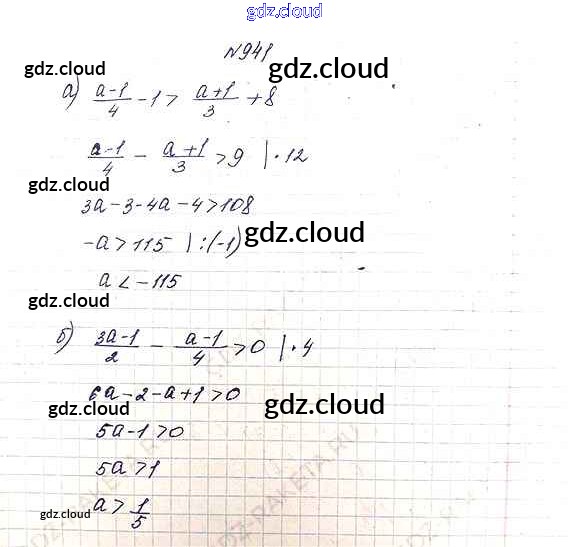 gdz.cloud
№941
gdz.cloud gdz.cloud
а) (a-1)/4 - 1 > (a+1)/3 + 8
(a-1)/4 - (a+1)/3 > 9 | · 12
gdz.cloud
3a-3-4a-4>108
-a>115 | :(-1) gdz.cloud
a < -115
gdz.cloud
б) (3a-1)/2 - (a-1)/4 > 0 | · 4
6a-2-a+1>0
gdz.cloud gdz.cloud
5a-1>0
5a>1
gdz.cloud a > 1/5
GDZ-RAKETA.RU